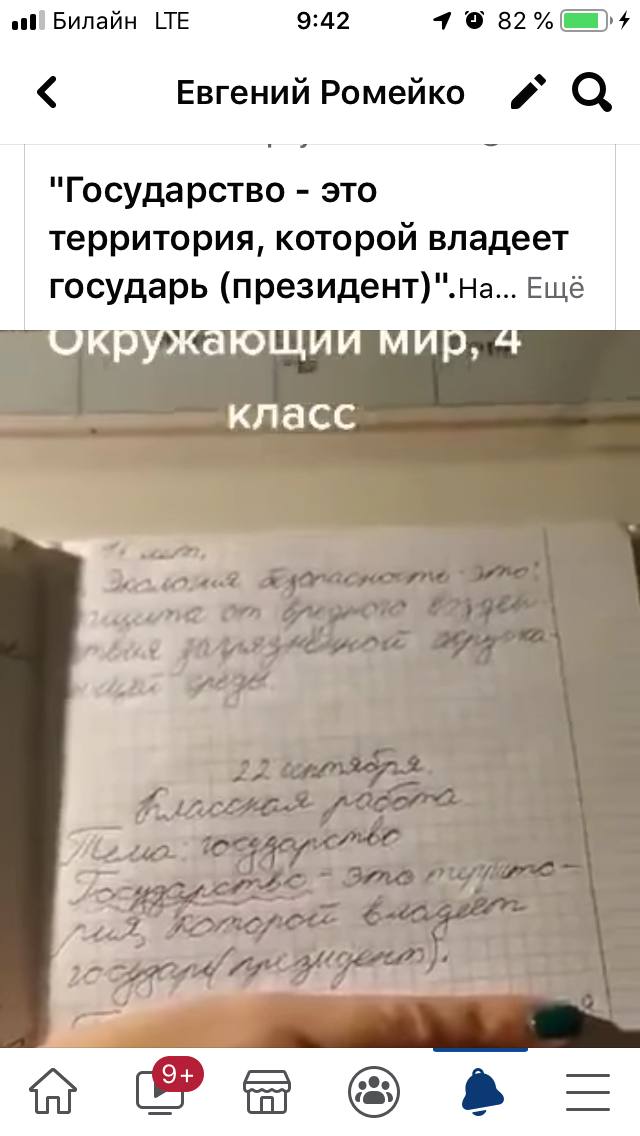 Билайн LTE 9:42 82 %
Евгений Ромейко
"Государство - это
территория, которой владеет
государь (президент)".На... Ещё
Окружающий мир, 4
класс
лет.
безопасность - это:
от вредного воздей
ствия загрязнённой окружа-
ющей среды.
22 сентября.
Классная работа
Тема: государство
Государство - это террито-
рия, которой владеет
государь(президент).
9+